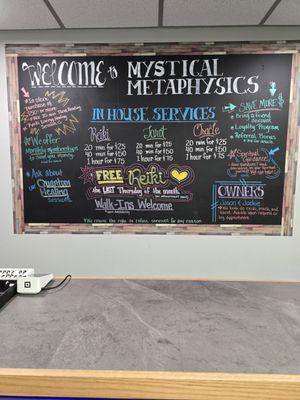 WELCOME to MYSTICAL METAPHYSICS
IN HOUSE SERVICES
Reiki
20 min for $25
40 min for $50
1 hour for $75
Tarot
20 min for $25
40 min for $50
1 hour for $75
Oracle
20 min for $25
40 min for $50
1 hour for $75
FREE Reiki
the LAST Thursday of the month
Walk-Ins Welcome
We reserve the right to refuse services for any reason
In store
purchase of
We offer
Monthly Memberships
to save you money
Ask about
Our
Quantum
Healing
Sessions
SAVE MORE
Bring a friend
discount
Loyalty Program
Referral Bonus
Spiritual
Guidance
OWNERS
Jason & Jackie